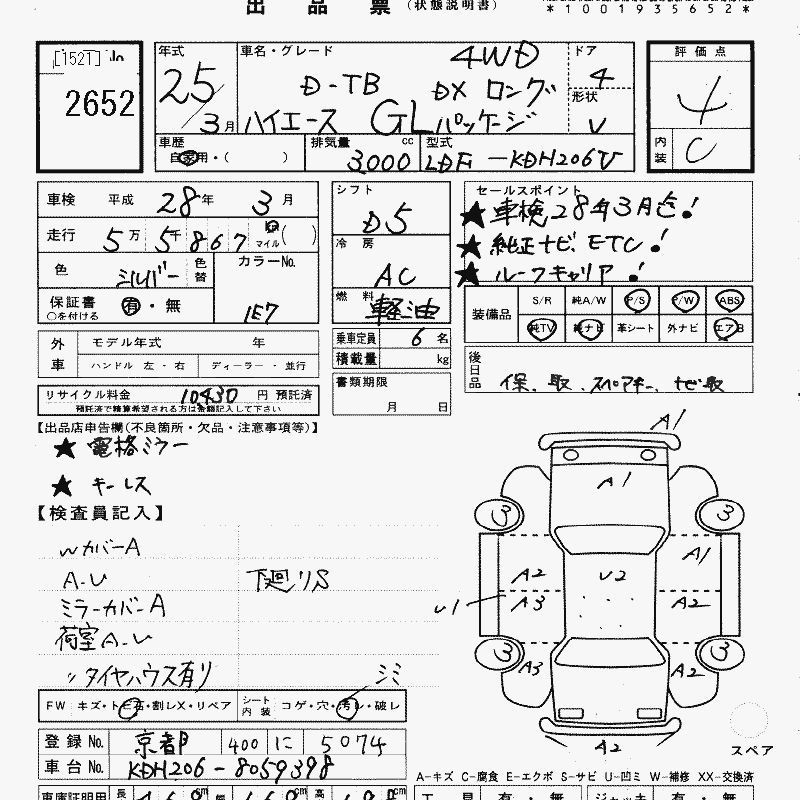 出 品 票 (状態説明書)
*1001935652*
[152T]
2652
年式
25/3月
車名・グレード
4WD
D-TB DX ロング
ハイエース GLパッケージ
ドア
4
形状
V
評価点
4
内装 C
車歴
自家用・( )
排気量 cc
3000
型式
LDF-KDH206V
車検 平成 28年 3月
走行 5万 5千 867 マイル( )
色 シルバー 色替
カラーNo.
1E7
保証書 有・無
○を付ける
シフト
D5
冷房
AC
燃料
軽油
セールスポイント
★車検28年3月迄!
★純正ナビ、ETC!
★ルーフキャリア!
装備品 S/R 純A/W P/S P/W ABS
純TV 純ナビ 革シート 外ナビ エアB
外車 モデル年式 年
ハンドル 左・右 ディーラー・並行
乗車定員 6名
積載量 kg
後日品 保、取、スペアキー、ナビ取
リサイクル料金 10430 円 預託済
預託済で精算希望される方は金額記入して下さい
書類期限
月 日
【出品店申告欄(不良箇所・欠品・注意事項等)】
★ 電格ミラー
★ キーレス
【検査員記入】
WカバーA
A-U
下廻りS
ミラーカバーA
荷室A-U
〃タイヤハウス有り
シミ
A1
A1
3 3
A1
A2 U2
U1 A3 A2
3 3
A3 A2
A2
スペア
FW キズ・トビ石・割レX・リペア
シート内装 コゲ・穴・汚レ・破レ
登録No. 京都 400 に 5074
車台No. KDH206-8059398
A-キズ C-腐食 E-エクボ S-サビ U-凹ミ W-補修 XX-交換済
車庫証明用 長 cm 幅 cm 高 cm
工具 有・無 ジャッキ 有・無